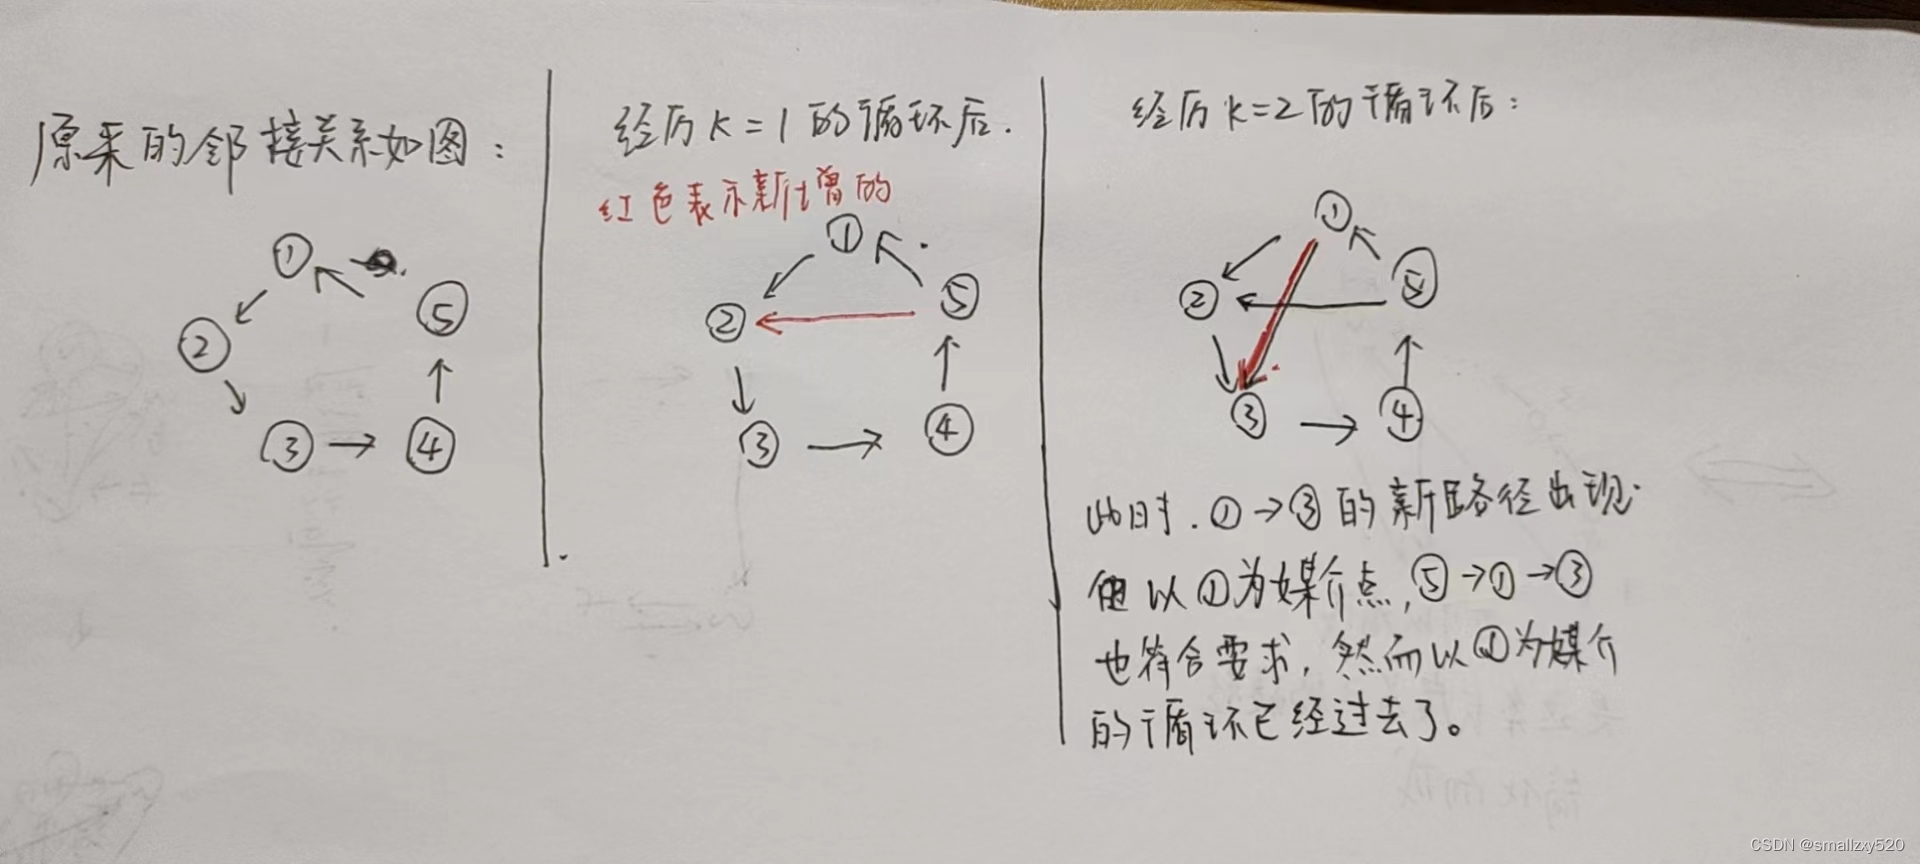 原来的邻接关系如图：
①
②
③ → ④
⑤
经历k=1的循环后.
红色表示新增的
①
②
⑤
③ → ④
经历k=2的循环后：
①
②
⑤
③ → ④
此时.①→③的新路径出现.
他以①为媒介点,⑤→①→③
也符合要求,然而以①为媒介
的循环已经过去了。
CSDN @smallzxy520